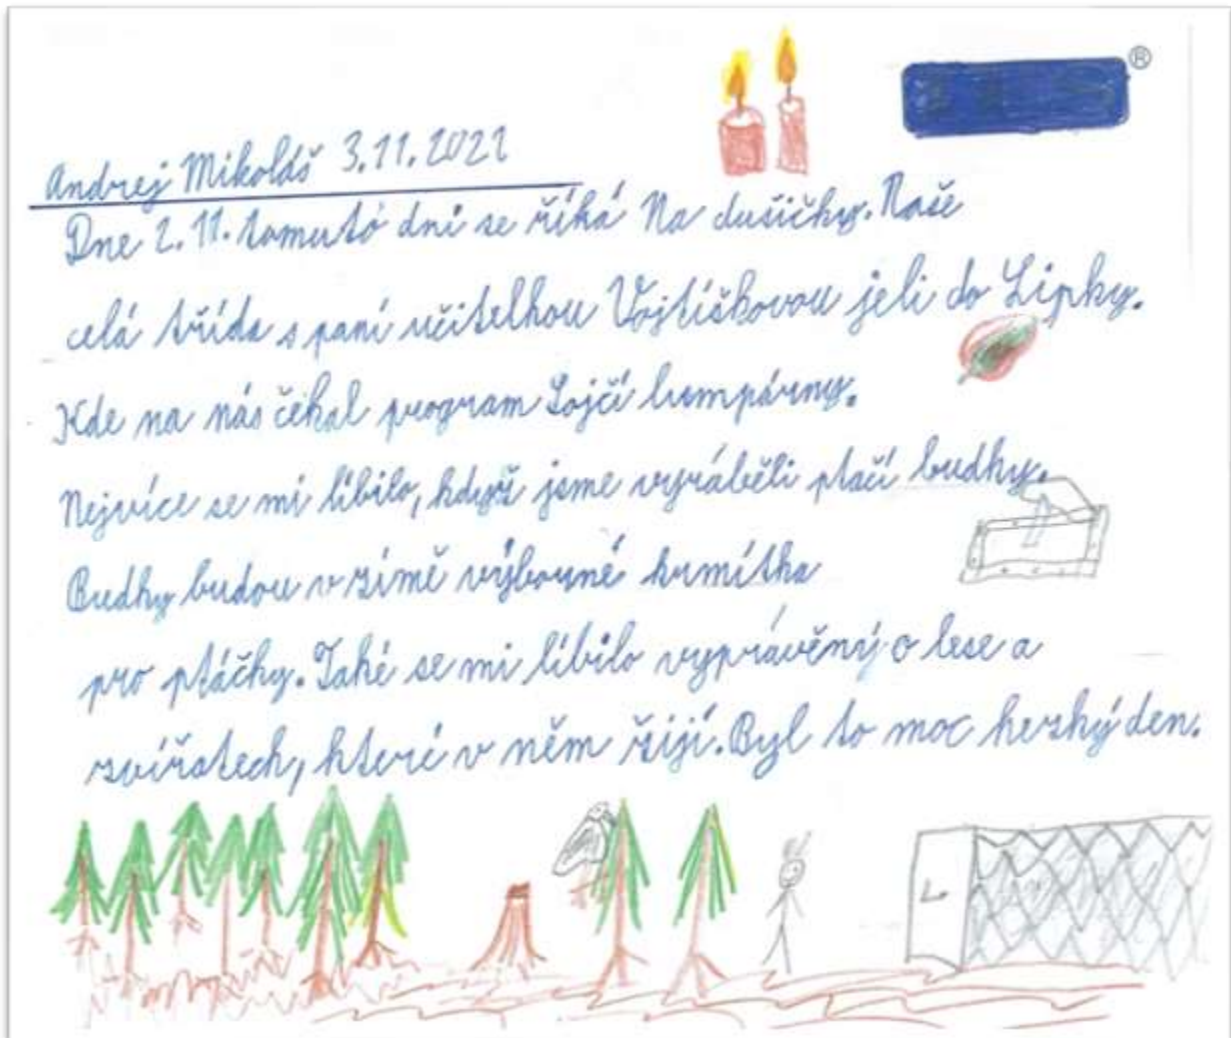 ®
Andrej Mikoláš 3.11.2022
Dne 2.11. tomuto dni se říká Na dušičky. Naše
celá třída s paní učitelkou Vojtíškovou jeli do Lipky.
Kde na nás čekal program Sojčí lumpárny.
Nejvíce se mi líbilo, když jsme vyráběli ptačí budky.
Budky budou v zimě výborné krmítka
pro ptáčky. Také se mi líbilo vyprávěný o lese a
zvířatech, které v něm žijí. Byl to moc hezký den.